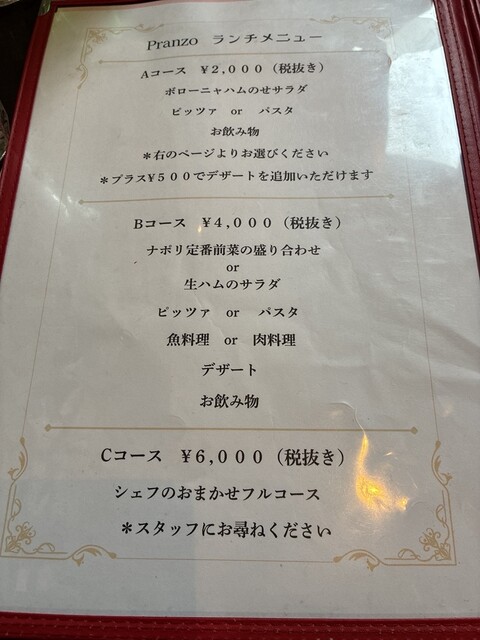 Pranzo ランチメニュー
Aコース ￥２,０００（税抜き）
ボローニャハムのせサラダ
ピッツァ or パスタ
お飲み物
＊右のページよりお選びください
＊プラス￥５００でデザートを追加いただけます
Bコース ￥４,０００（税抜き）
ナポリ定番前菜の盛り合わせ
or
生ハムのサラダ
ピッツァ or パスタ
魚料理 or 肉料理
デザート
お飲み物
Cコース ￥６,０００（税抜き）
シェフのおまかせフルコース
＊スタッフにお尋ねください